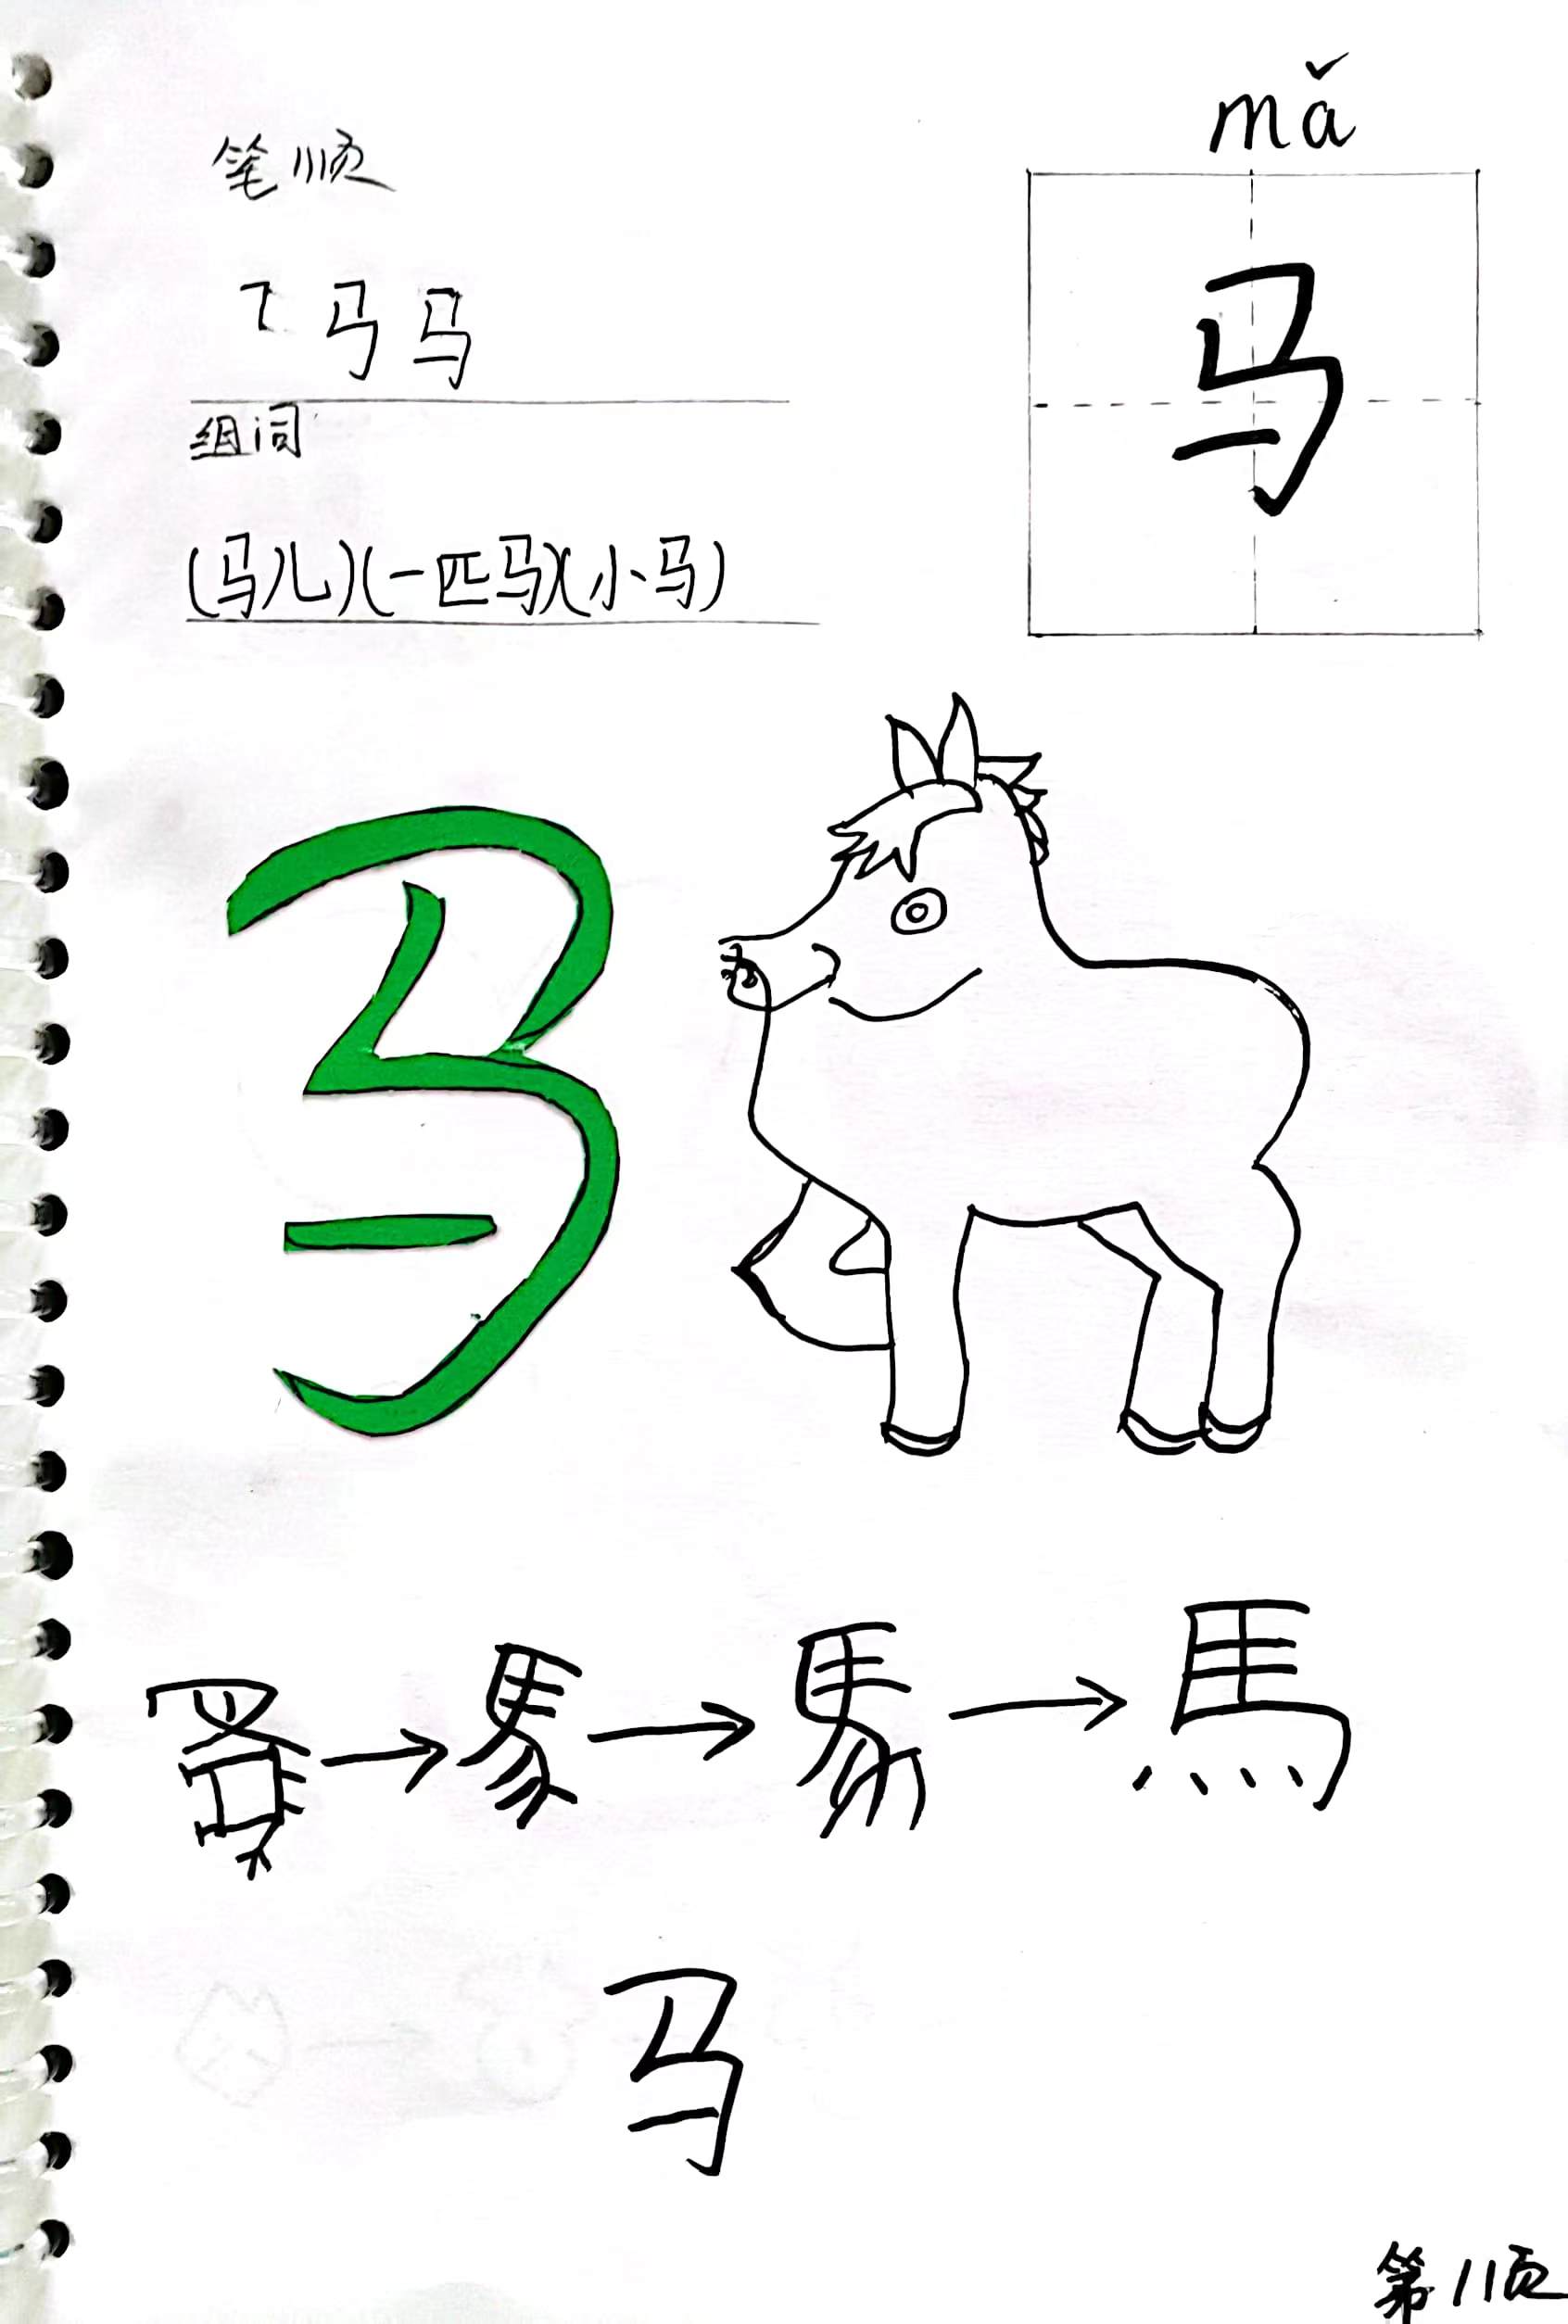 笔顺
mǎ
㇕ 马 马
马
组词
(马儿)(一匹马)(小马)
马
→ 馬 → 馬 → 馬
马
第11页